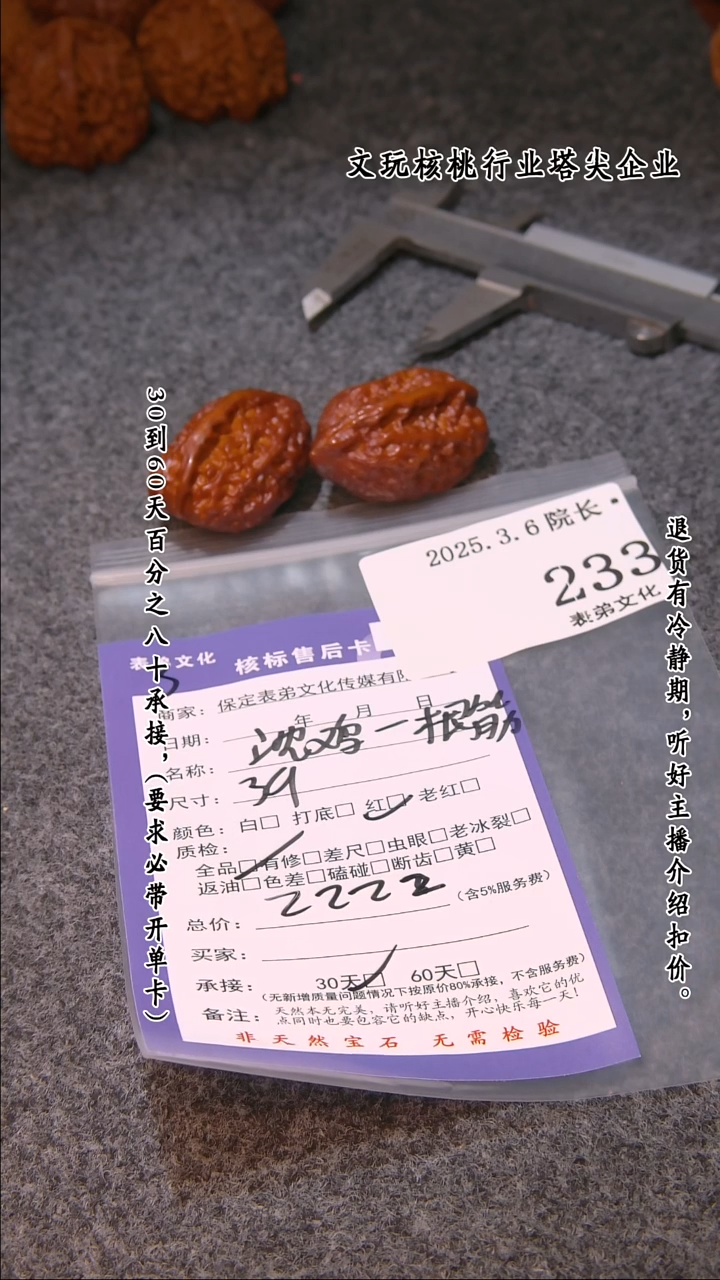 文玩核桃行业塔尖企业
30到60天百分之八十承接，(要求必带开单卡)
退货有冷静期，听好主播介绍扣价。
2025.3.6 院长
233
表弟文化
表弟文化 核标售后卡
商家：保定表弟文化传媒有限
日期： 年 月 日
名称： 鸡一根筋
尺寸：39
颜色：白□ 打底□ 红□ 老红□
质检：
全品□有修□差尺□虫眼□老冰裂□
返油□色差□磕碰□断齿□黄□
总价：2222 (含5%服务费)
买家：
承接： 30天□ 60天□
(无新增质量问题情况下按原价80%承接，不含服务费)
备注：天然本无完美，请听好主播介绍，喜欢它的优
点同时也要包容它的缺点，开心快乐每一天！
非天然宝石 无需检验